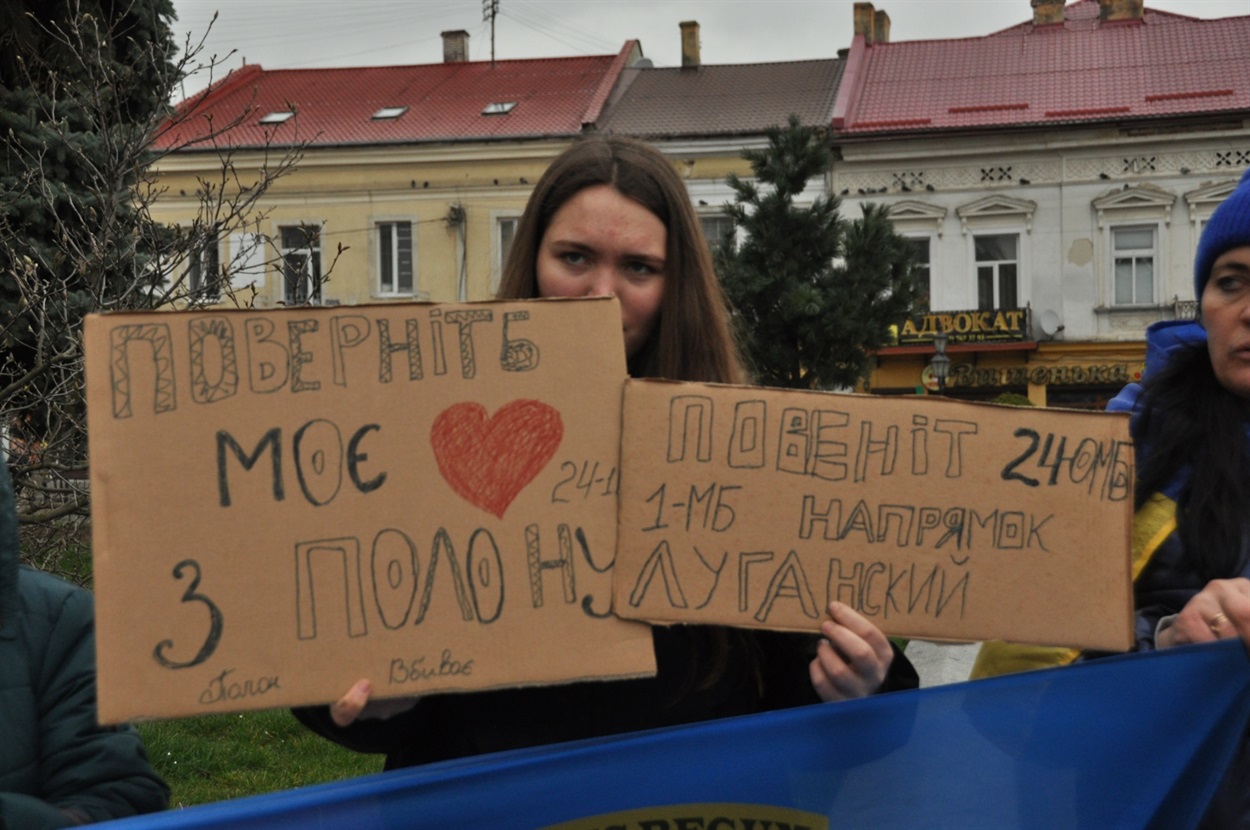 ПОВЕРНІТЬ
МОЄ
24-1
З ПОЛОНУ
Полон Вбиває
ПОВЕНІТ 24ОМБ
1-МБ НАПРЯМОК
ЛУГАНСКИЙ
АДВОКАТ
Вишенька